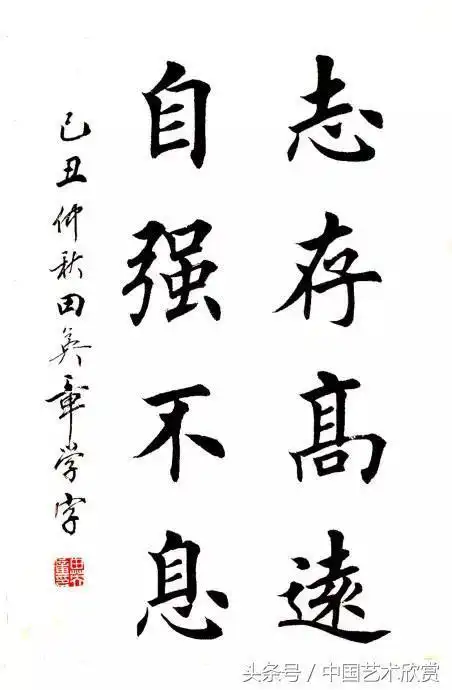 志存髙遠
自强不息
己丑仲秋田英章学字
头条号/中国艺术欣赏